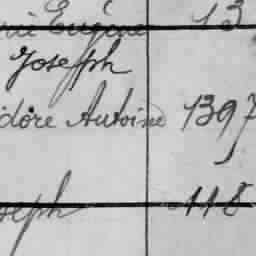 Eugène 13
Joseph
dore Antoine 1397
seph 118